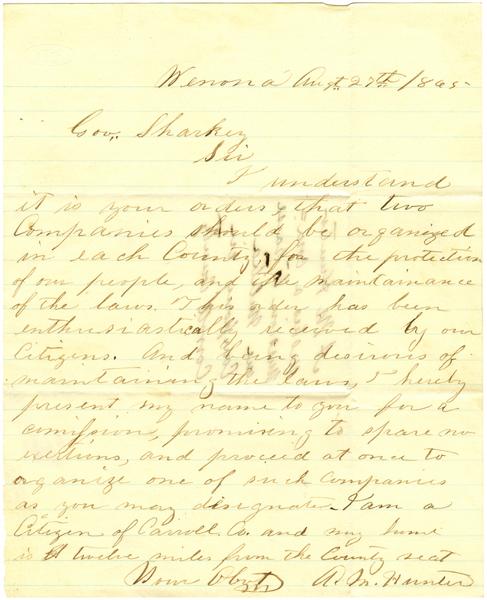 Winona Augt. 27th /1865-
Gov. Sharkey
Sir
I understand
it is your orders that two
Companies should be organized
in each County, for the protection
of our people, and the maintainance
of the laws. This order has been
enthusiastically received by our
Citizens. And being desirous of
maintaining the laws, I hereby
present my name to you for a
comission, promising to spare no
exertions, and proceed at once to
organize one of such Companies
as you may designate. I am a
Citizen of Carroll Co. and my home
is twelve miles from the County seat
Your Obvt
A. M. Hunter